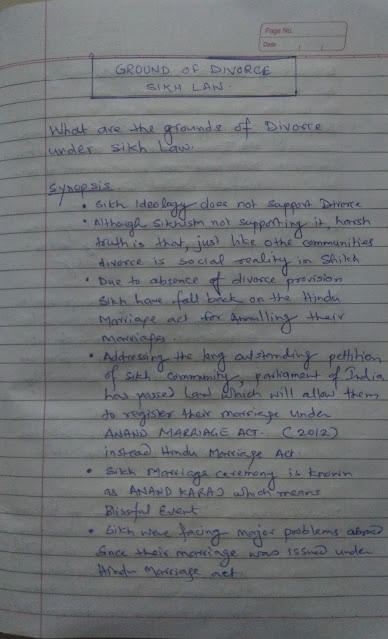 Page No.
Date
GROUND OF DIVORCE
SIKH LAW.
What are the grounds of Divorce
under Sikh Law.
Synopsis
• Sikh Ideology does not support Divorce
• Although Sikhism not supporting it, harsh
truth is that, just like othe communities
divorce is social reality in Shikh
• Due to absence of divorce provision
Sikh have fall back on the Hindu
Marriage act for Annulling their
marriages.
• Addressing the long outstanding pettition
of Sikh community, parliament of India
has passed Law which will allow them
to register their marriage under
ANAND MARRIAGE ACT. (2012)
instead Hindu Marriage Act.
• Sikh Marriage ceremony is known
as ANAND KARAJ which means
Blissful Event
• Sikh were facing major problems abroad
Since their marriage was issued under
Hindu Marriage act.